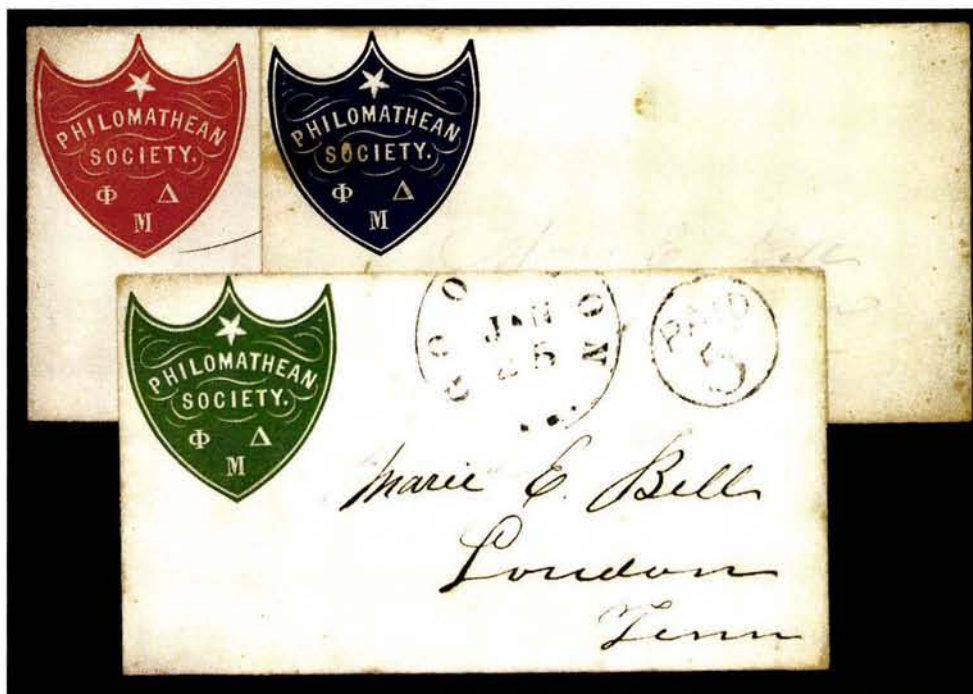 PHILOMATHEAN
SOCIETY.
Φ Δ
M
PHILOMATHEAN
SOCIETY.
Φ Δ
M
E. Bell
PHILOMATHEAN
SOCIETY.
Φ Δ
M
JAN
25
PAID
5
Marie E. Bell
London
Tenn